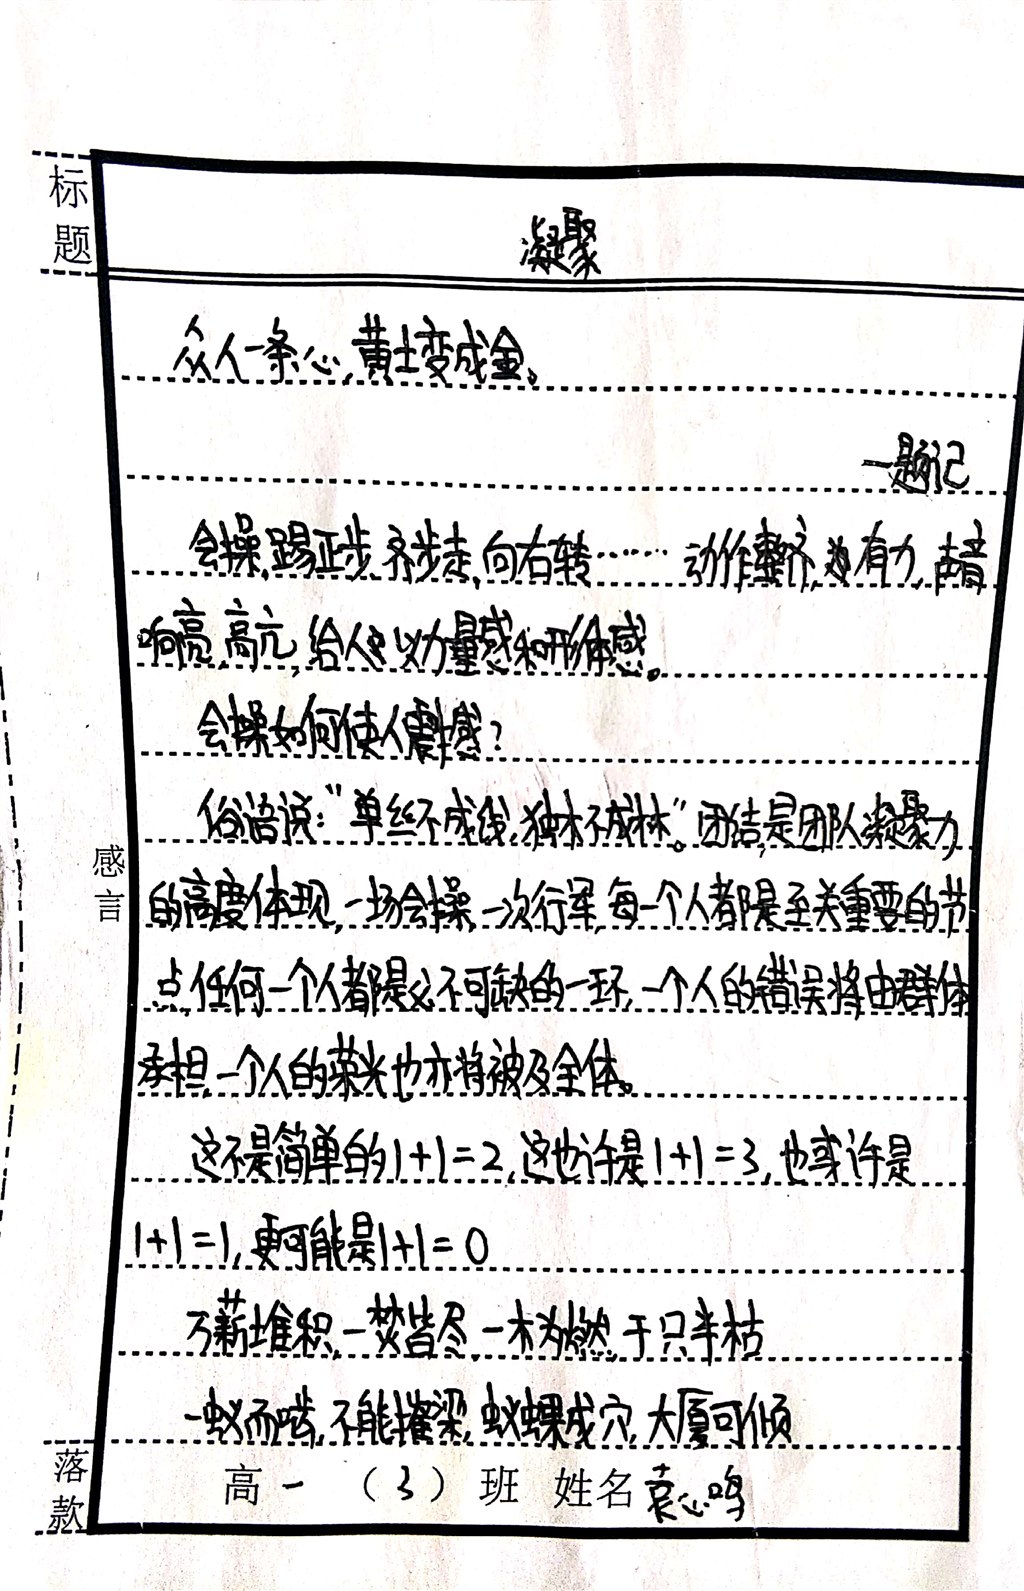 标题
凝聚
众人一条心,黄土变成金。
一题记
会操,踢正步,齐步走,向右转…… 动作整齐,有力,声音
响亮,高亢,给人以力量感和形体感。
会操如何使人震撼?
俗语说:"单丝不成线,独木不成林"。团结,是团队凝聚力
的高度体现,一场会操,一次行军,每一个人都是至关重要的节
点,任何一个人都是必不可缺的一环,一个人的错误将由群体
承担,一个人的荣光也亦将被及全体。
感言
这不是简单的1+1=2,这也许是1+1=3,也或许是
1+1=1,更可能是1+1=0
万薪堆积,一焚皆尽,一木为燃,于只半枯
一蚁而啮,不能摧梁,蚁蝶成穴,大厦可倾
落款
高一(3)班 姓名 袁心鸣